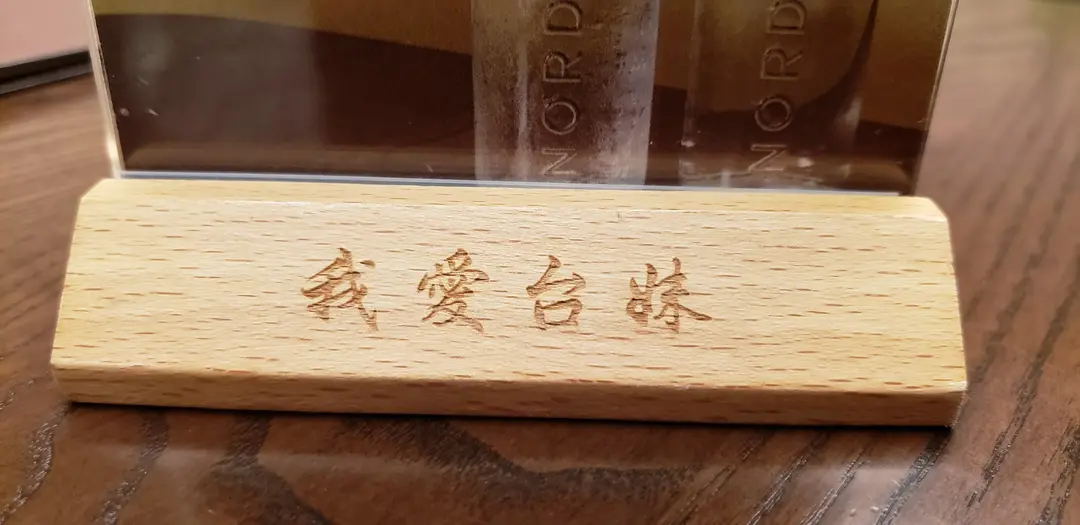 我愛台妹
NORD
NORD